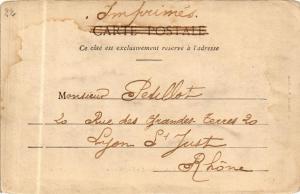 22
Imprimés.
CARTE POSTALE
Ce côté est exclusivement réservé à l'adresse
Monsieur Petillot
20 Rue des Grandes Terres 20
Lyon St Just
Rhône